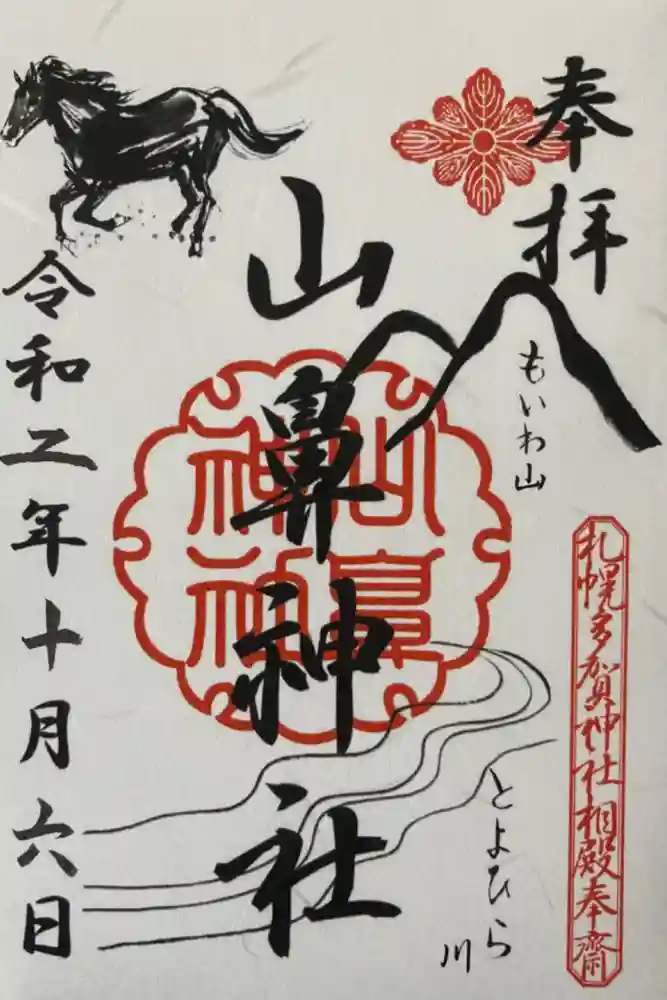 奉拝
もいわ山
札幌多賀神社相殿奉齋
山鼻神社
山鼻
神社
とよひら川
令和二年十月六日